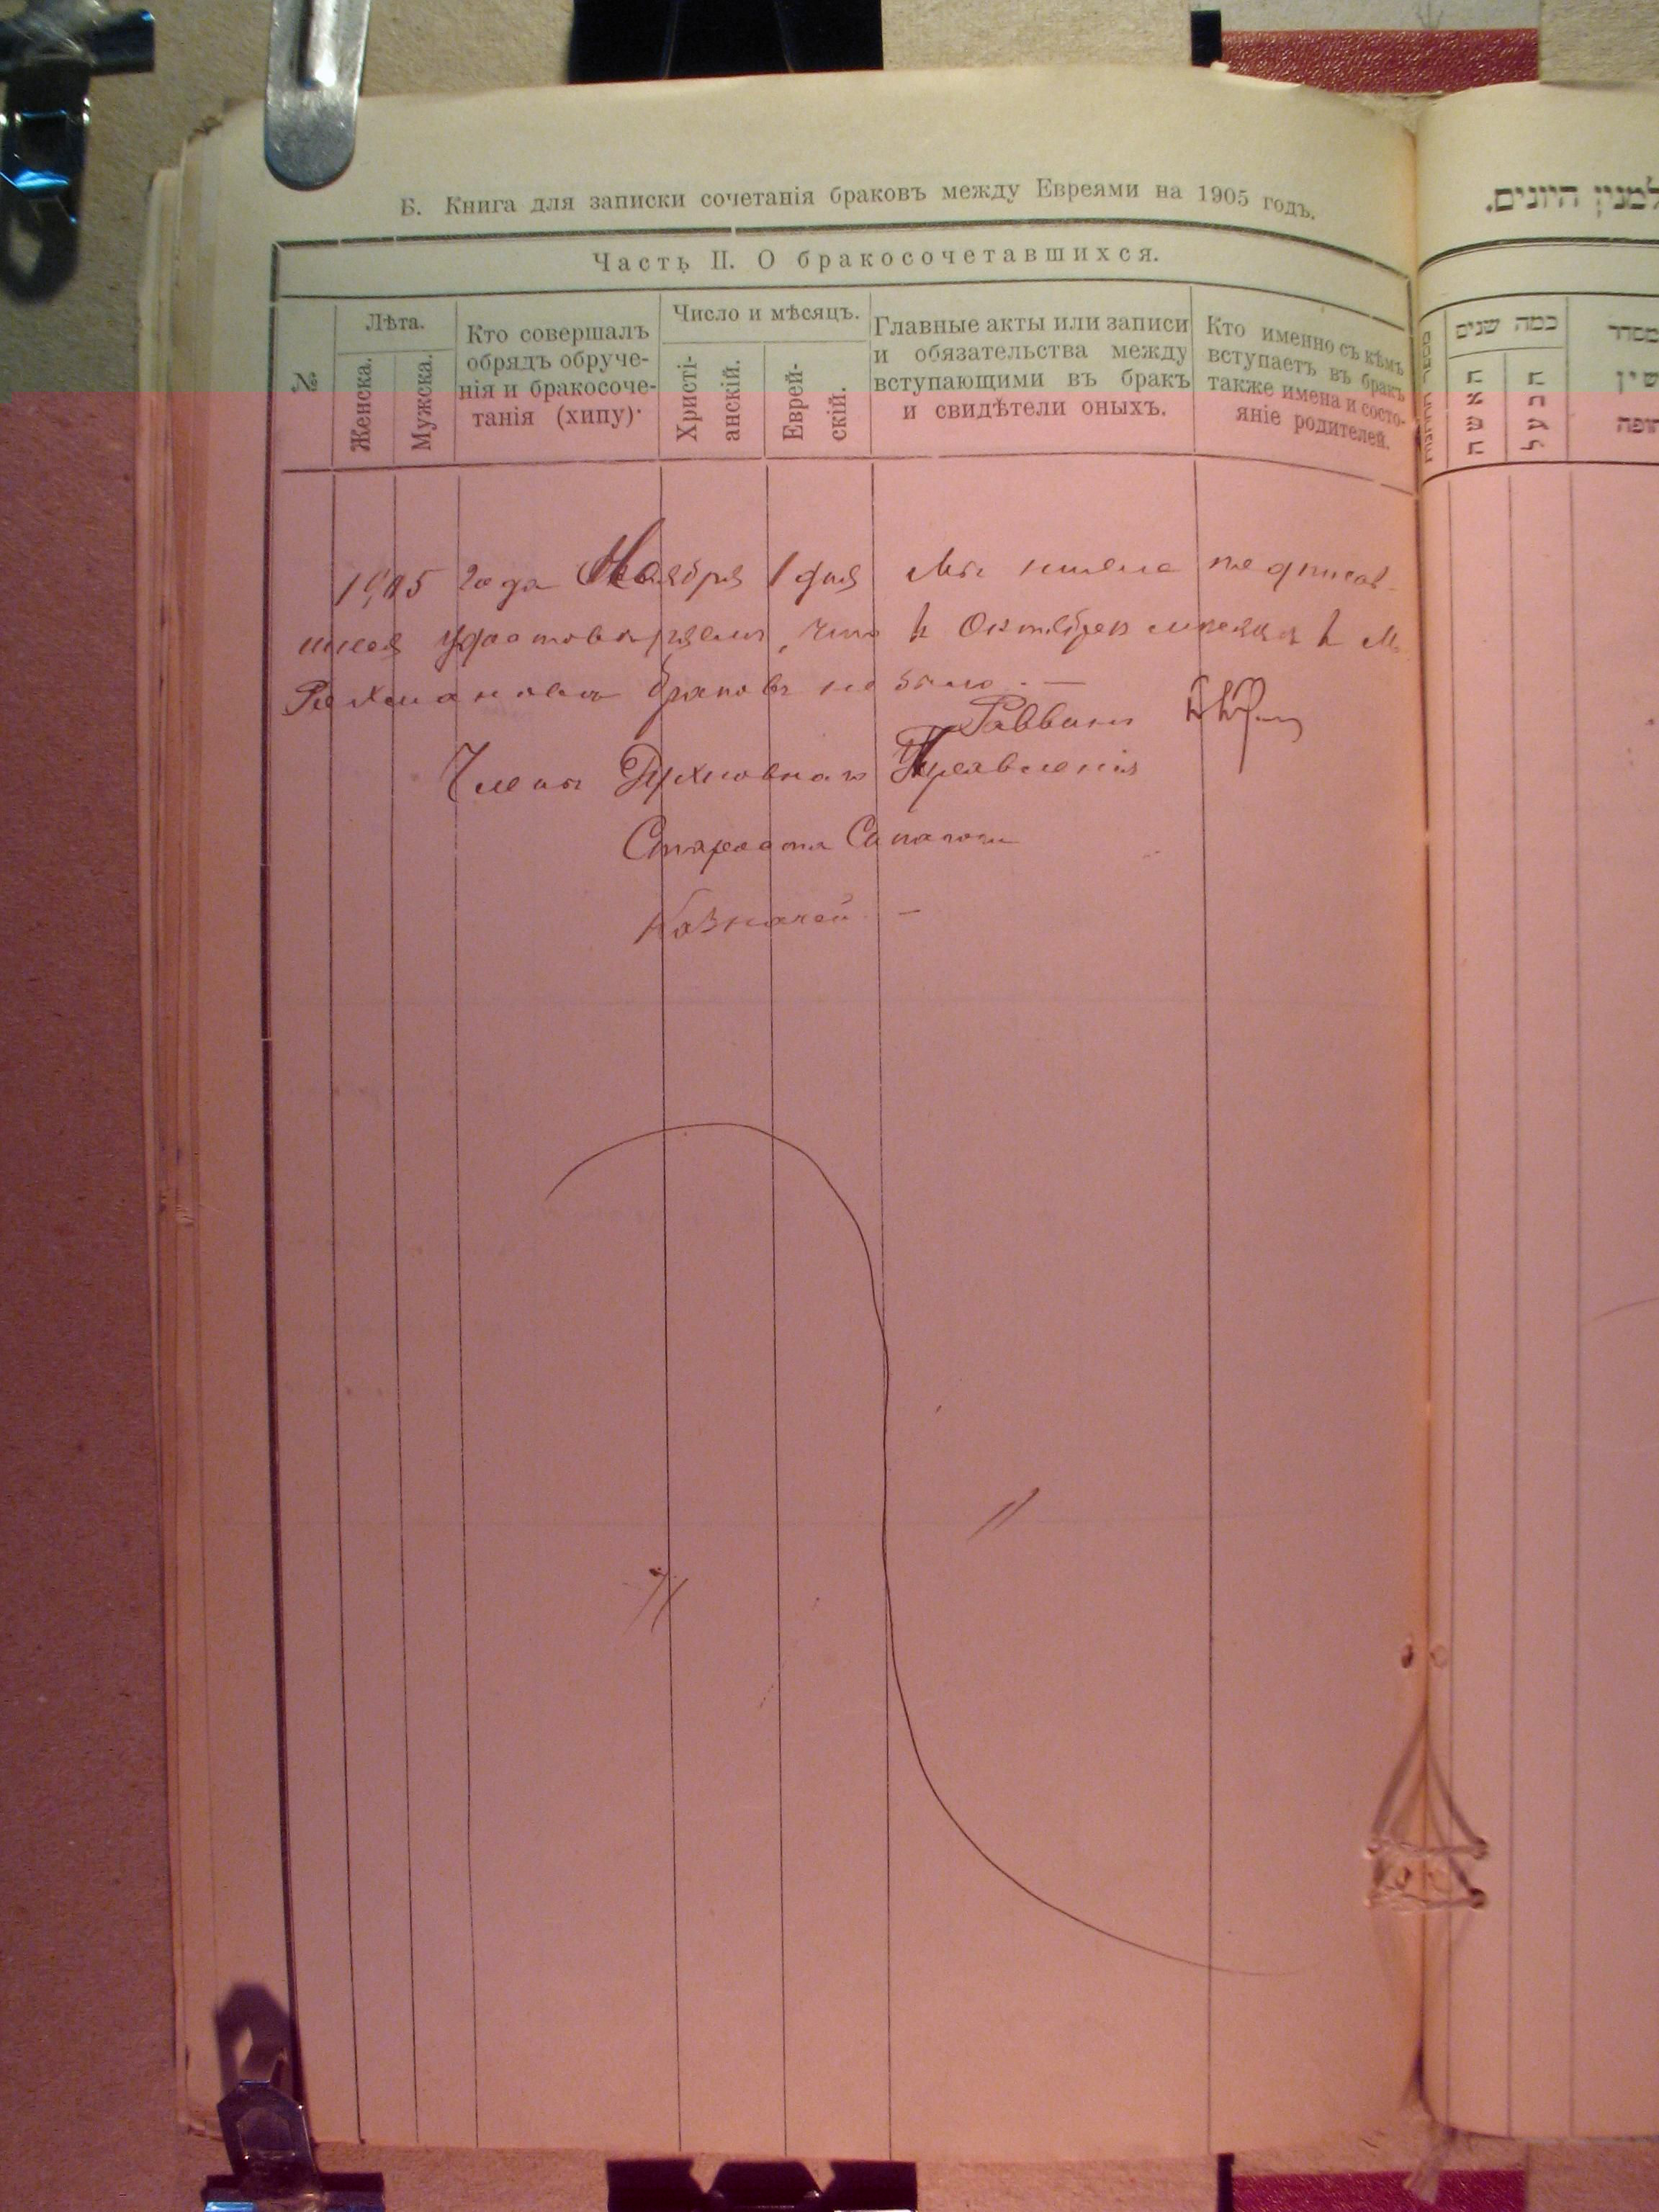 Б. Книга для записки сочетанія браковъ между Евреями на 1905 годъ.
Часть II. О бракосочетавшихся.
№
Лѣта.
Женска.
Мужска.
Кто совершалъ
обрядъ обруче-
нія и бракосоче-
танія (хипу).
Число и мѣсяцъ.
Христі-
анскій.
Еврей-
скій.
Главные акты или записи
и обязательства между
вступающими въ бракъ
и свидѣтели оныхъ.
Кто именно съ кѣмъ
вступаетъ въ бракъ
также имена и состо-
яніе родителей.
1905 года Ноября 1 дня Мы ниже подписав-
шиеся удостоверяем, что в Октябре месяце в М.
Рахмановка браковъ не было. —
Раввинъ
Члены Духовнаго Правления
Староста
Казначей —
למנין היונים.
כמה שנים
האשה
הבעל